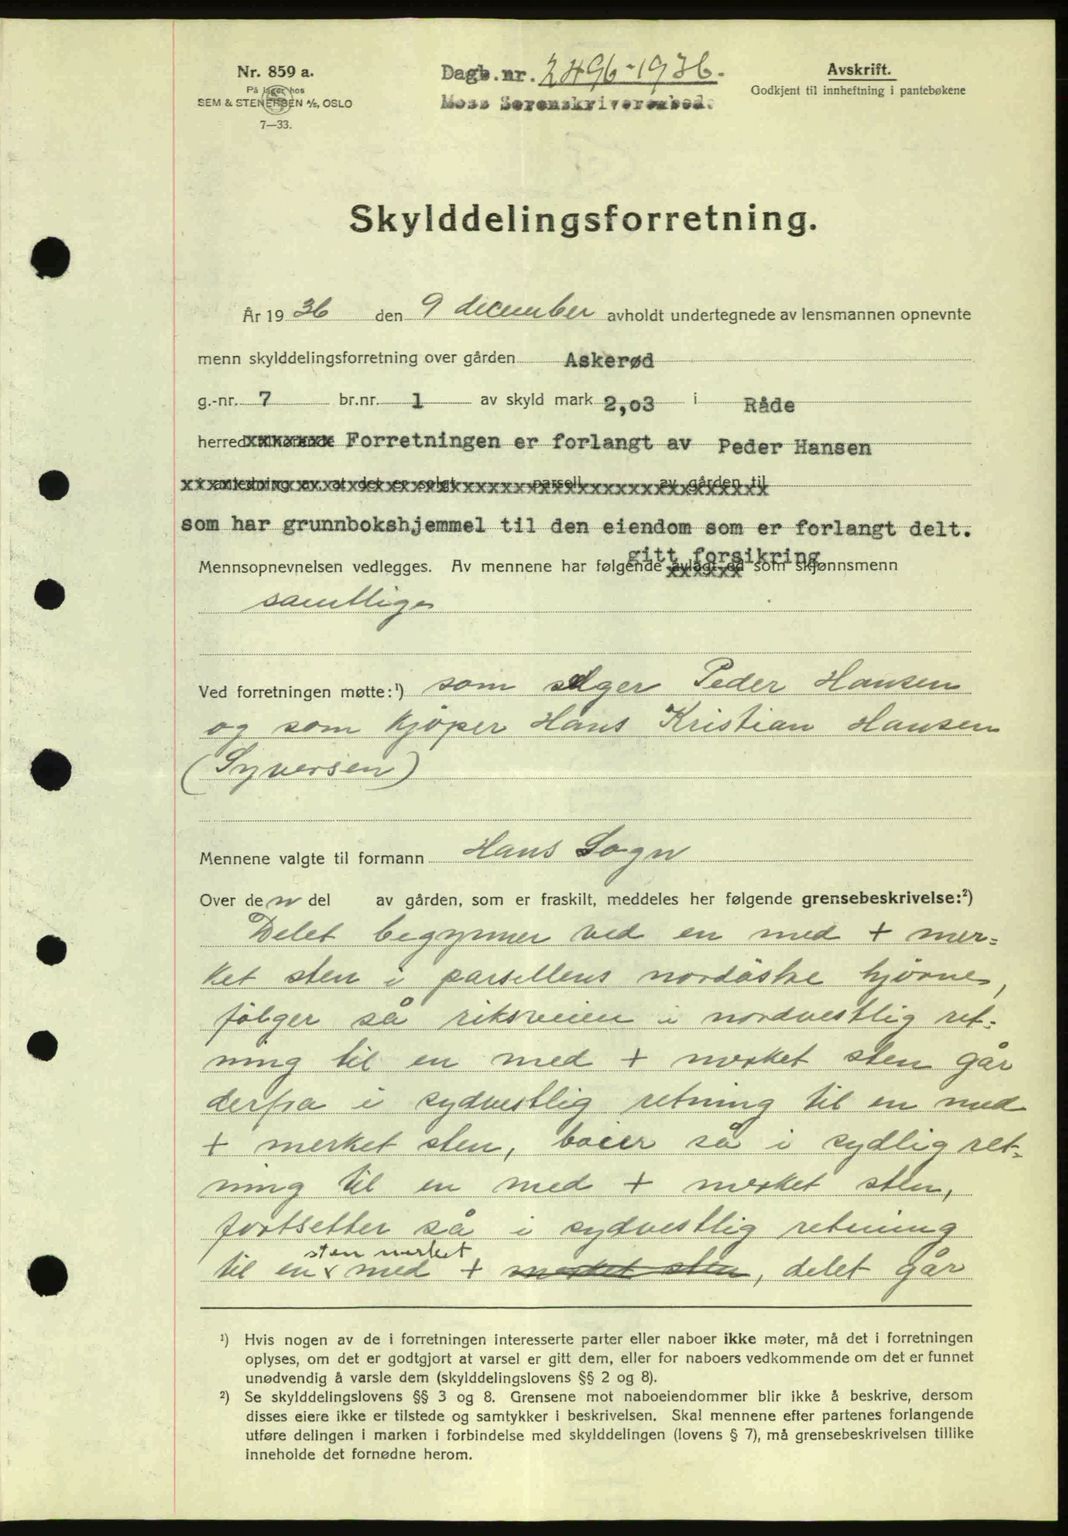 Nr. 859 a.
På lager hos
SEM & STENERSEN A/S, OSLO
7—33.
Dagb.nr. 2496-1936.
Moss Sorenskriverembed.
Avskrift.
Godkjent til innheftning i pantebøkene
Skylddelingsforretning.
År 1936 den 9 december avholdt undertegnede av lensmannen opnevnte
menn skylddelingsforretning over gården Askerød
g.-nr. 7 br.nr. 1 av skyld mark 2,03 i Råde
herred Forretningen er forlangt av Peder Hansen
i anledning av at det er solgt parsell av gården til
som har grunnbokshjemmel til den eiendom som er forlangt delt.
gitt forsikring
Mennsopnevnelsen vedlegges. Av mennene har følgende avlagt ed som skjønnsmenn
samtlige
Ved forretningen møtte:¹) som selger Peder Hansen
og som kjøper Hans Kristian Hansen
(Syversen)
Mennene valgte til formann Hans Sogn
Over den del av gården, som er fraskilt, meddeles her følgende grensebeskrivelse:²)
Delet begynner ved en med + mer=
ket sten i parsellens nordöstre hjörne,
fölger så riksveien i nordvestlig ret=
ning til en med + merket sten går
derfra i sydvestlig retning til en med
+ merket sten, böier så i sydlig ret=
ning til en med + merket sten,
fortsetter så i sydvestlig retning
sten merket
til en x med + merket sten, delet går
¹) Hvis nogen av de i forretningen interesserte parter eller naboer ikke møter, må det i forretningen
oplyses, om det er godtgjort at varsel er gitt dem, eller for naboers vedkommende om det er funnet
unødvendig å varsle dem (skylddelingslovens §§ 2 og 8).
²) Se skylddelingslovens §§ 3 og 8. Grensene mot naboeiendommer blir ikke å beskrive, dersom
disses eiere ikke er tilstede og samtykker i beskrivelsen. Skal mennene efter partenes forlangende
utføre delingen i marken i forbindelse med skylddelingen (lovens § 7), må grensebeskrivelsen tillike
inneholde det fornødne herom.